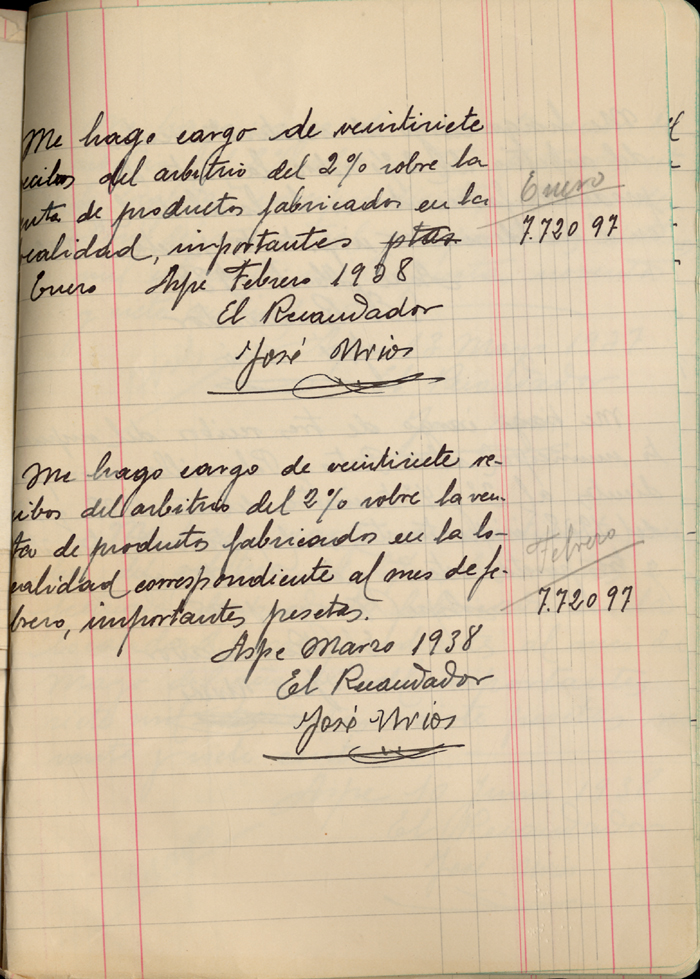 Me hago cargo de veintisiete
ecibos del arbitrio del 2% sobre la
nta de productos fabricados en la
Enero
localidad, importantes ptas
7.720 97
Enero Aspe Febrero 1938
El Recaudador
José Urios
Me hago cargo de veintisiete re-
cibos del arbitrio del 2% sobre la ven-
ta de productos fabricados en la lo-
Febrero
calidad correspondiente al mes de fe-
7.720 97
brero, importantes pesetas.
Aspe Marzo 1938
El Recaudador
José Urios